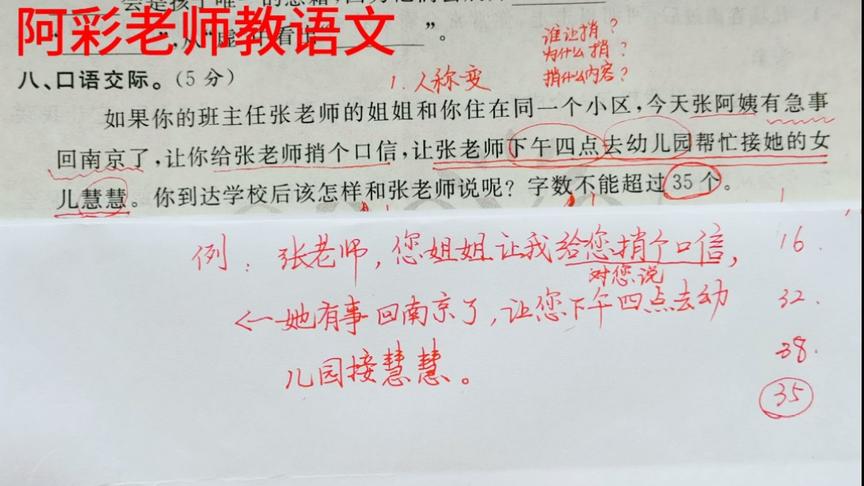 阿彩老师教语文
”，从“虚”中看出“ ”。
谁让捎？
为什么捎？
捎什么内容？
八、口语交际。（5分）
1.人称变
如果你的班主任张老师的姐姐和你住在同一个小区，今天张阿姨有急事
回南京了，让你给张老师捎个口信，让张老师下午四点去幼儿园帮忙接她的女
儿慧慧。你到达学校后该怎样和张老师说呢？字数不能超过35个。
例：张老师，您姐姐让我给您捎个口信， 16.
对您说
她有事回南京了，让您下午四点去幼 32.
儿园接慧慧。 38.
35